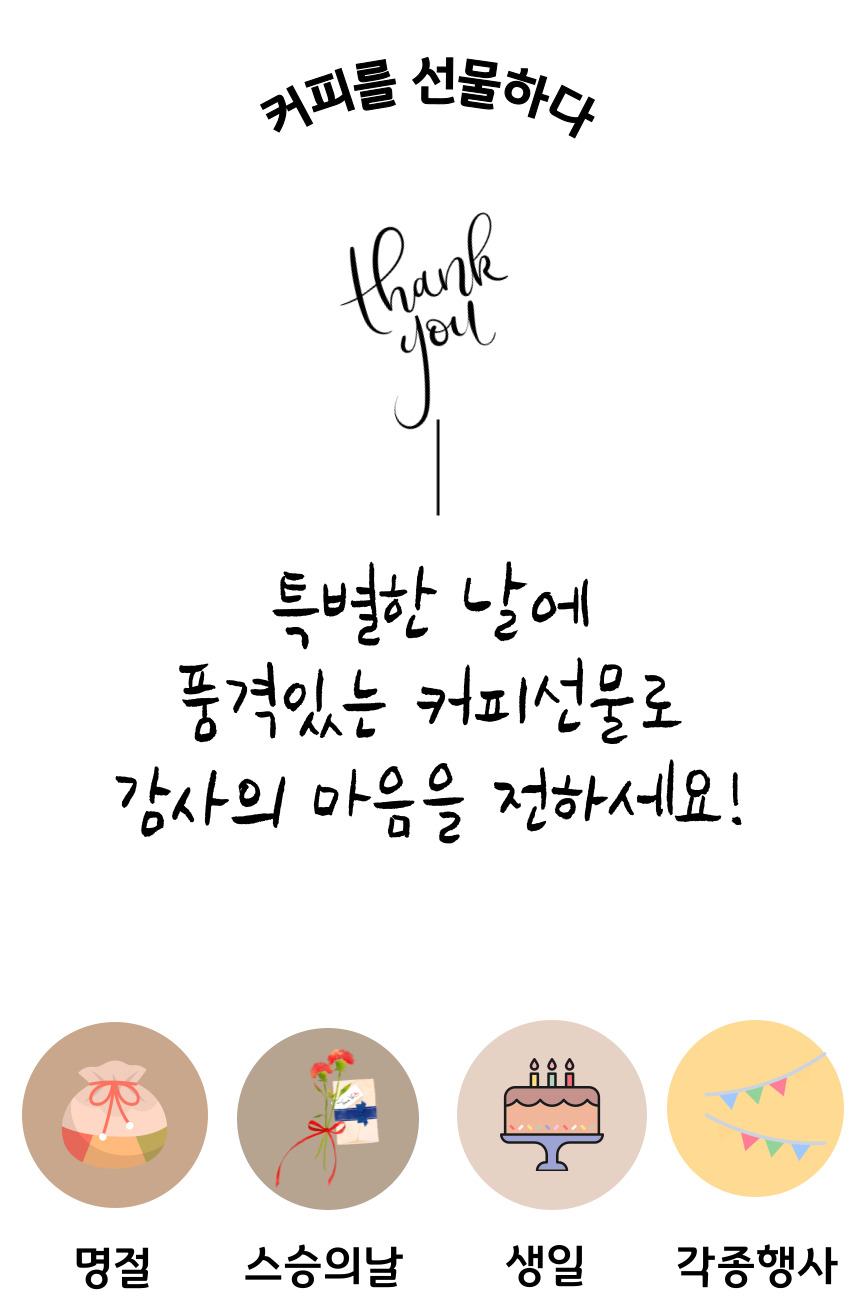 커피를 선물하다
thank
you
특별한 날에
품격있는 커피선물로
감사의 마음을 전하세요!
명절
스승의날
생일
각종행사